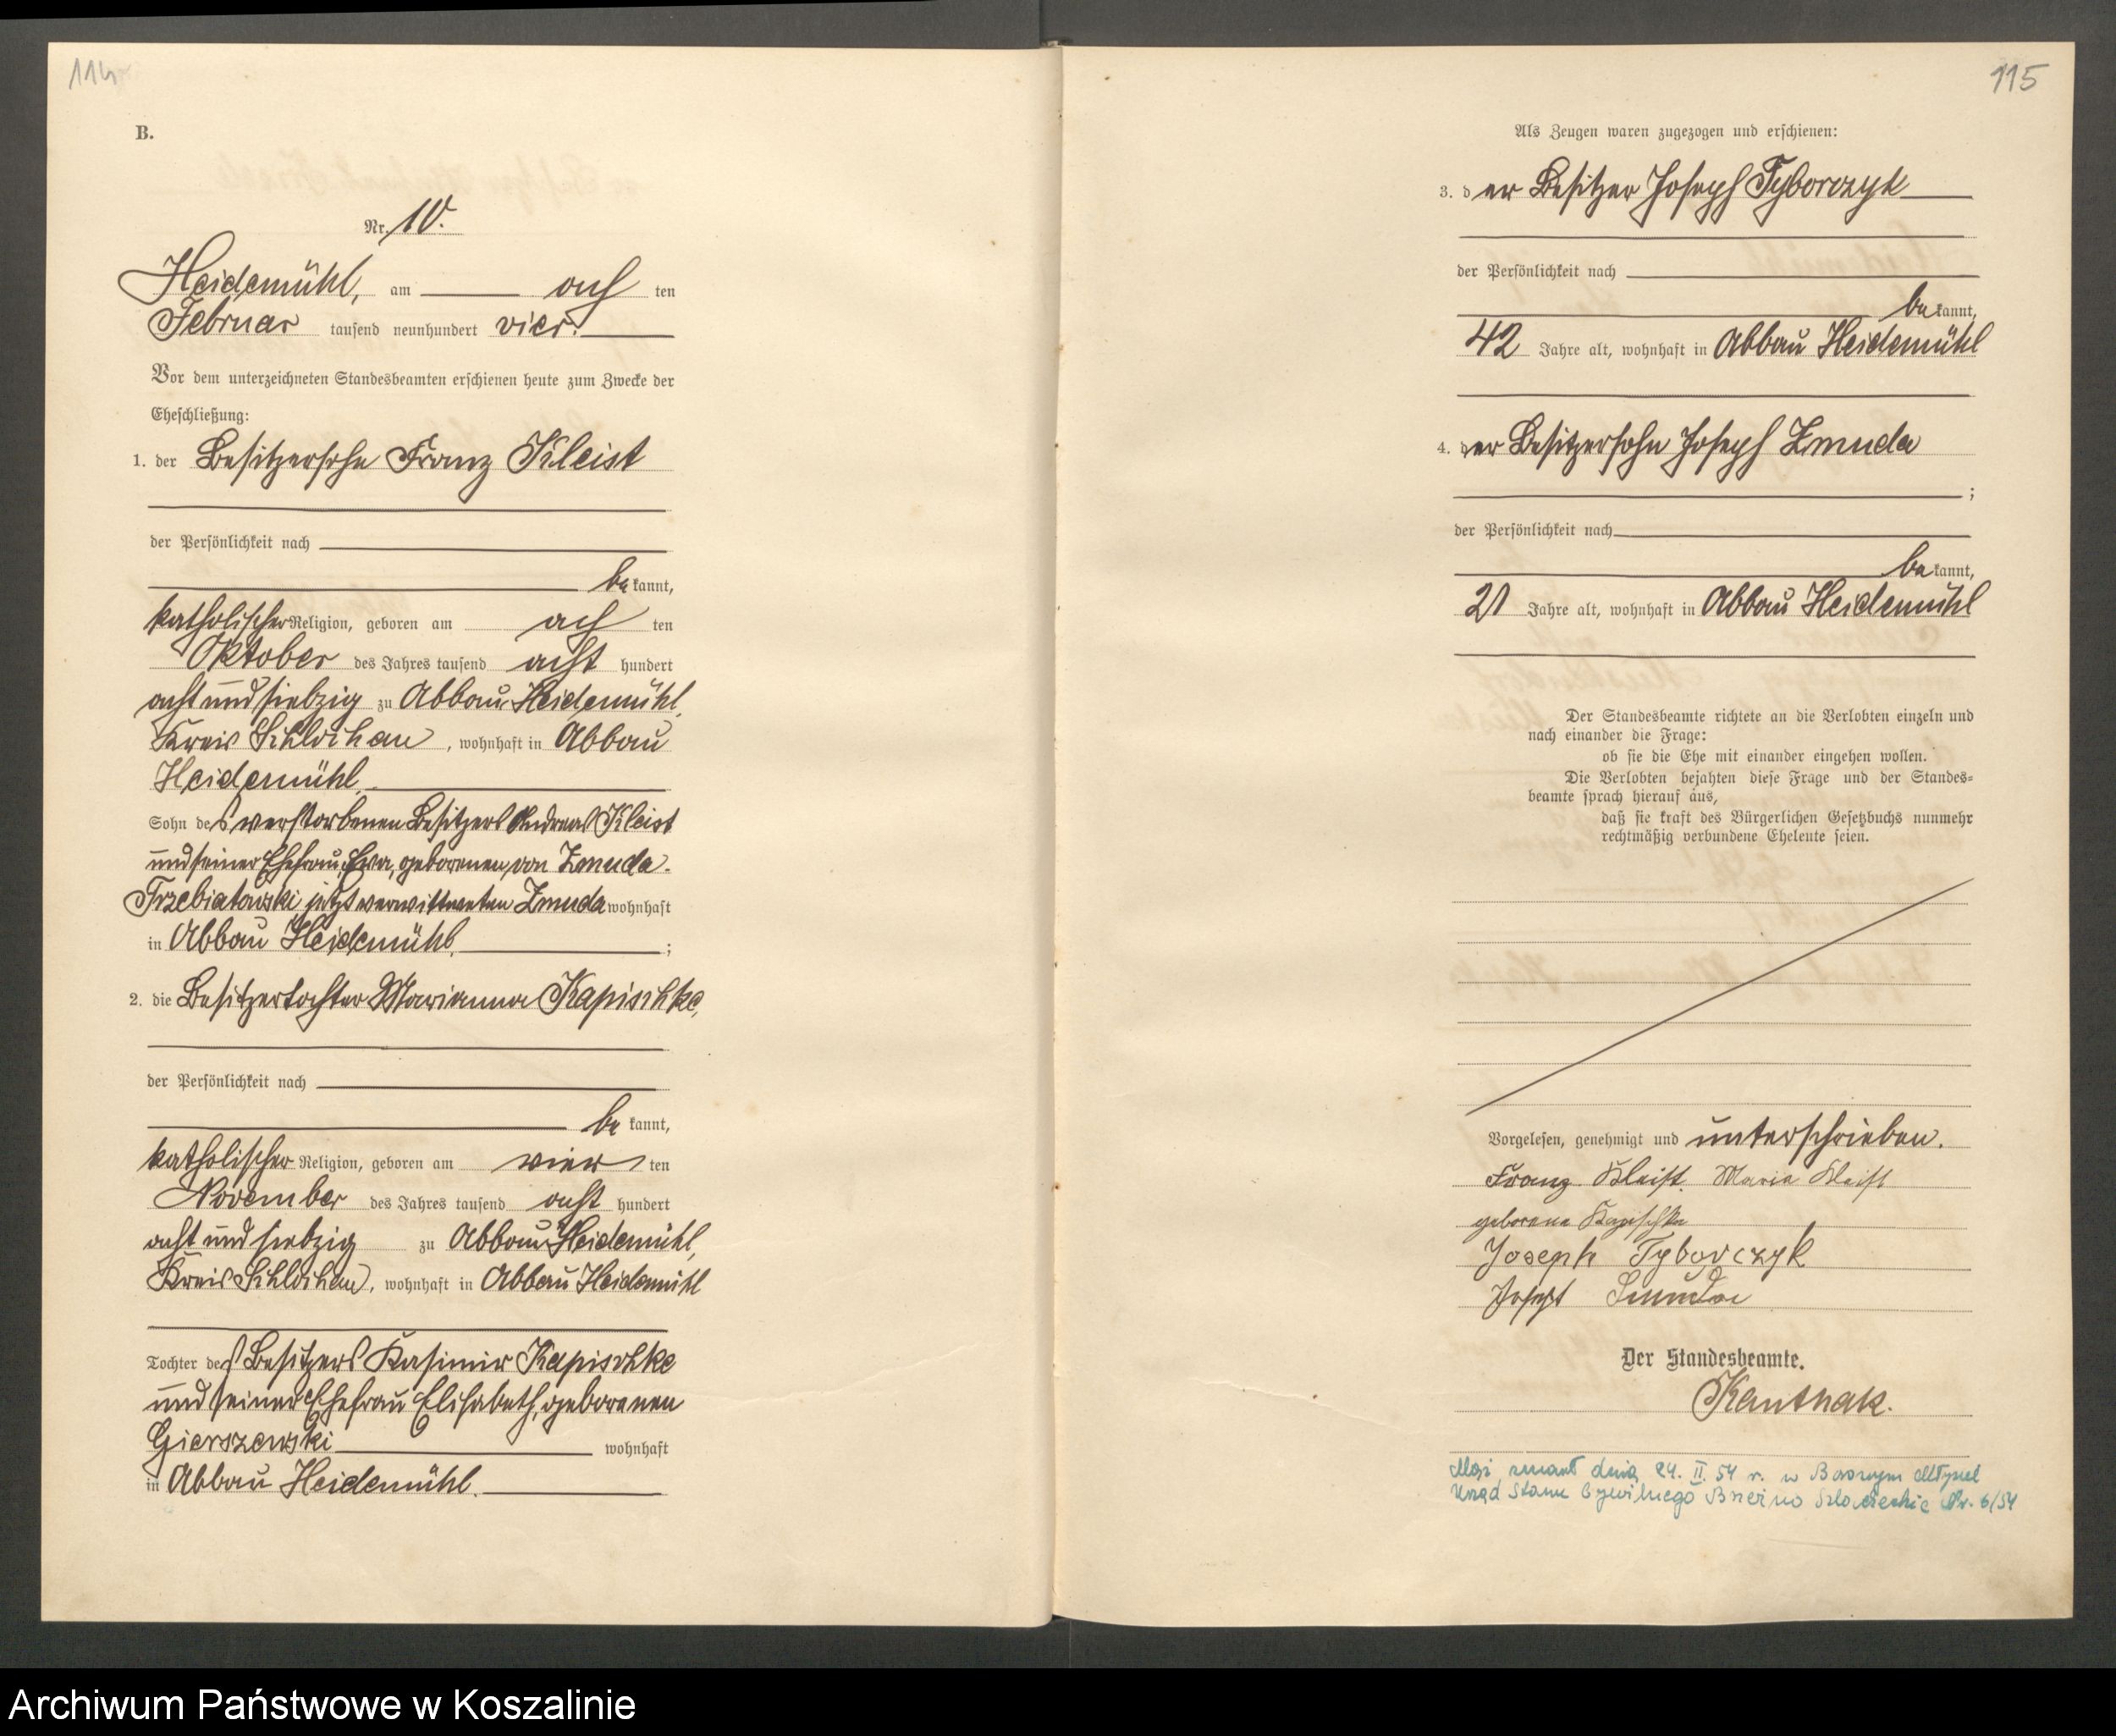 114
B.
Nr. 10.
Heidemühl, am ach ten
Februar tausend neunhundert vier.
Vor dem unterzeichneten Standesbeamten erschienen heute zum Zwecke der
Eheschließung:
1. der Besitzersohn Franz Kleist
der Persönlichkeit nach
be kannt,
katholischer Religion, geboren am ach ten
Oktober des Jahres tausend acht hundert
acht und siebzig zu Abbau Heidemühl,
Kreis Schlochau, wohnhaft in Abbau
Heidemühl,
Sohn des verstorbenen Besitzers Andreas Kleist
und seiner Ehefrau, Eva, geborenen von Zmuda-
Trzebiatowski jetzt verwittweten Zmuda wohnhaft
in Abbau Heidemühl, ;
2. die Besitzertochter Marianna Kapischke,
der Persönlichkeit nach
be kannt,
katholischer Religion, geboren am vier ten
November des Jahres tausend acht hundert
acht und siebzig zu Abbau Heidemühl,
Kreis Schlochau, wohnhaft in Abbau Heidemühl
Tochter des Besitzers Kasimir Kapischke
und seiner Ehefrau Elisabeth, geborenen
Gierszewski wohnhaft
in Abbau Heidemühl.
115
Als Zeugen waren zugezogen und erschienen:
3. der Besitzer Joseph Tyborczyk
der Persönlichkeit nach
be kannt,
42 Jahre alt, wohnhaft in Abbau Heidemühl
4. der Besitzersohn Joseph Zmuda
;
der Persönlichkeit nach
be kannt,
21 Jahre alt, wohnhaft in Abbau Heidemühl
Der Standesbeamte richtete an die Verlobten einzeln und
nach einander die Frage:
ob sie die Ehe mit einander eingehen wollen.
Die Verlobten bejahten diese Frage und der Standes-
beamte sprach hierauf aus,
daß sie kraft des Bürgerlichen Gesetzbuchs nunmehr
rechtmäßig verbundene Eheleute seien.
Vorgelesen, genehmigt und unterschrieben.
Franz Kleist. Maria Kleist
geborene Kapischke
Joseph Tyborczyk
Josept Smuda
Der Standesbeamte.
Kanthak.
Mąż zmarł dnia 24. II. 54 r. w Borowym Młynie
Urząd Stanu Cywilnego Brzeźno Szlacheckie Nr. 6/54
Archiwum Państwowe w Koszalinie